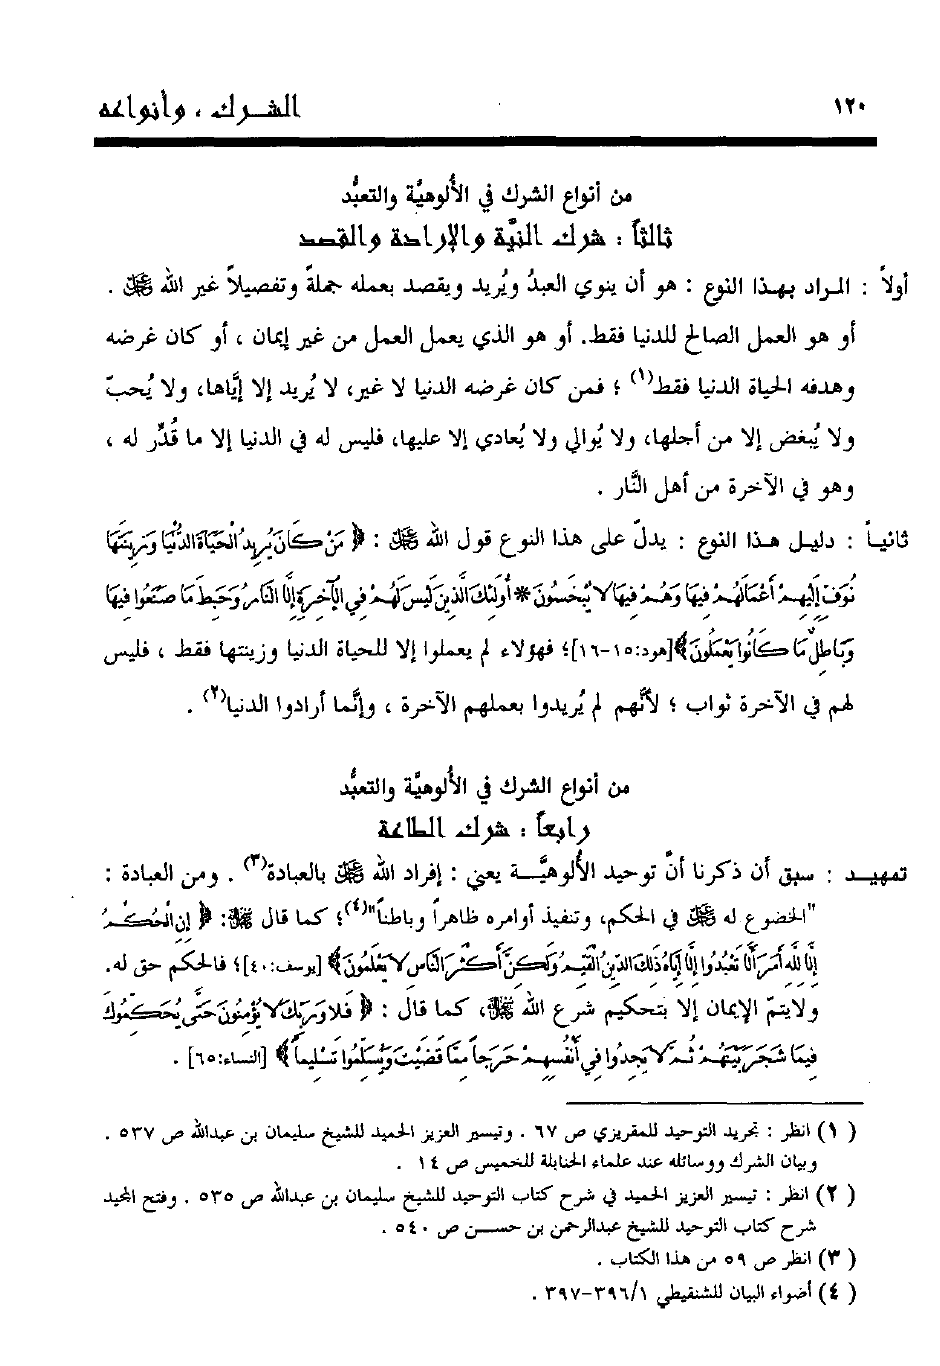 ١٢٠ الشرك ، وأنواعه
من أنواع الشرك في الألوهيَّة والتعبُّد
ثالثاً : شرك النيَّة والإرادة والقصد
أولاً : المراد بهذا النوع : هو أن ينوي العبدُ ويُريد ويقصد بعمله جملةً وتفصيلاً غير الله ﷻ .
أو هو العمل الصالح للدنيا فقط. أو هو الذي يعمل العمل من غير إيمان ، أو كان غرضه
وهدفه الحياة الدنيا فقط(١) ؛ فمن كان غرضه الدنيا لا غير، لا يُريد إلا إيَّاها، ولا يُحبّ
ولا يُبغض إلا من أجلها، ولا يُوالي ولا يُعادي إلا عليها، فليس له في الدنيا إلا ما قُدِّر له ،
وهو في الآخرة من أهل النَّار .
ثانياً : دليل هذا النوع : يدلّ على هذا النوع قول الله ﷻ : ﴿ مَنْ كَانَ يُرِيدُ الْحَيَاةَ الدُّنْيَا وَزِينَتَهَا
نُوَفِّ إِلَيْهِمْ أَعْمَالَهُمْ فِيهَا وَهُمْ فِيهَا لا يُبْخَسُونَ * أُولَئِكَ الَّذِينَ لَيْسَ لَهُمْ فِي الْآخِرَةِ إِلَّا النَّارُ وَحَبِطَ مَا صَنَعُوا فِيهَا
وَبَاطِلٌ مَا كَانُوا يَعْمَلُونَ﴾[هود:١٥-١٦]؛ فهؤلاء لم يعملوا إلا للحياة الدنيا وزينتها فقط ، فليس
لهم في الآخرة ثواب ؛ لأنَّهم لم يُريدوا بعملهم الآخرة ، وإنَّما أرادوا الدنيا(٢) .
من أنواع الشرك في الألوهيَّة والتعبُّد
رابعاً : شرك الطاعة
تمهيد : سبق أن ذكرنا أنَّ توحيد الألوهيَّة يعني : إفراد الله ﷻ بالعبادة(٣) . ومن العبادة :
"الخضوع له ﷻ في الحكم، وتنفيذ أوامره ظاهراً وباطناً"(٤)؛ كما قال ﷻ: ﴿ إِنِ الْحُكْمُ
إِلَّا لِلَّهِ أَمَرَ أَلَّا تَعْبُدُوا إِلَّا إِيَّاهُ ذَلِكَ الدِّينُ الْقَيِّمُ وَلَكِنَّ أَكْثَرَ النَّاسِ لا يَعْلَمُونَ﴾ [يوسف:٤٠]؛ فالحكم حق له.
ولايتمّ الإيمان إلا بتحكيم شرع الله ﷻ، كما قال : ﴿ فَلا وَرَبِّكَ لا يُؤْمِنُونَ حَتَّى يُحَكِّمُوكَ
فِيمَا شَجَرَ بَيْنَهُمْ ثُمَّ لا يَجِدُوا فِي أَنْفُسِهِمْ حَرَجاً مِمَّا قَضَيْتَ وَيُسَلِّمُوا تَسْلِيماً﴾ [النساء:٦٥] .
( ١) انظر : تجريد التوحيد للمقريزي ص ٦٧ . وتيسير العزيز الحميد للشيخ سليمان بن عبدالله ص ٥٣٧ .
وبيان الشرك ووسائله عند علماء الحنابلة للخميس ص ١٤ .
( ٢) انظر : تيسير العزيز الحميد في شرح كتاب التوحيد للشيخ سليمان بن عبدالله ص ٥٣٥ . وفتح المجيد
شرح كتاب التوحيد للشيخ عبدالرحمن بن حسن ص ٥٤٠ .
( ٣) انظر ص ٥٩ من هذا الكتاب .
( ٤) أضواء البيان للشنقيطي ٣٩٦/١-٣٩٧ .